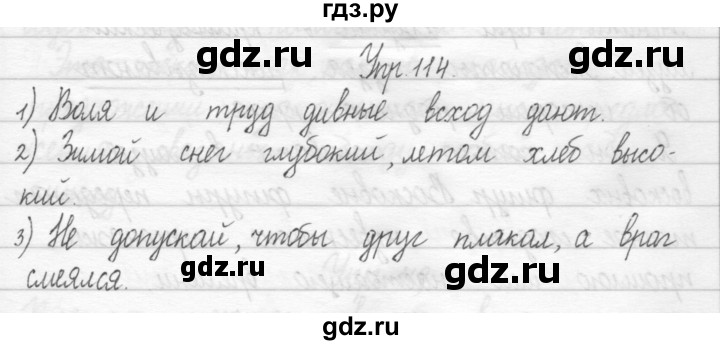 гдз.ру
Упр. 114.
1) Воля и труд дивные всход дают.
2) Зимой снег глубокий, летом хлеб высо-
кий.
3) Не допускай, чтобы друг плакал, а враг
смеялся.
gdz.ru gdz.ru
gdz.ru gdz.ru
gdz.ru gdz.ru
gdz.ru